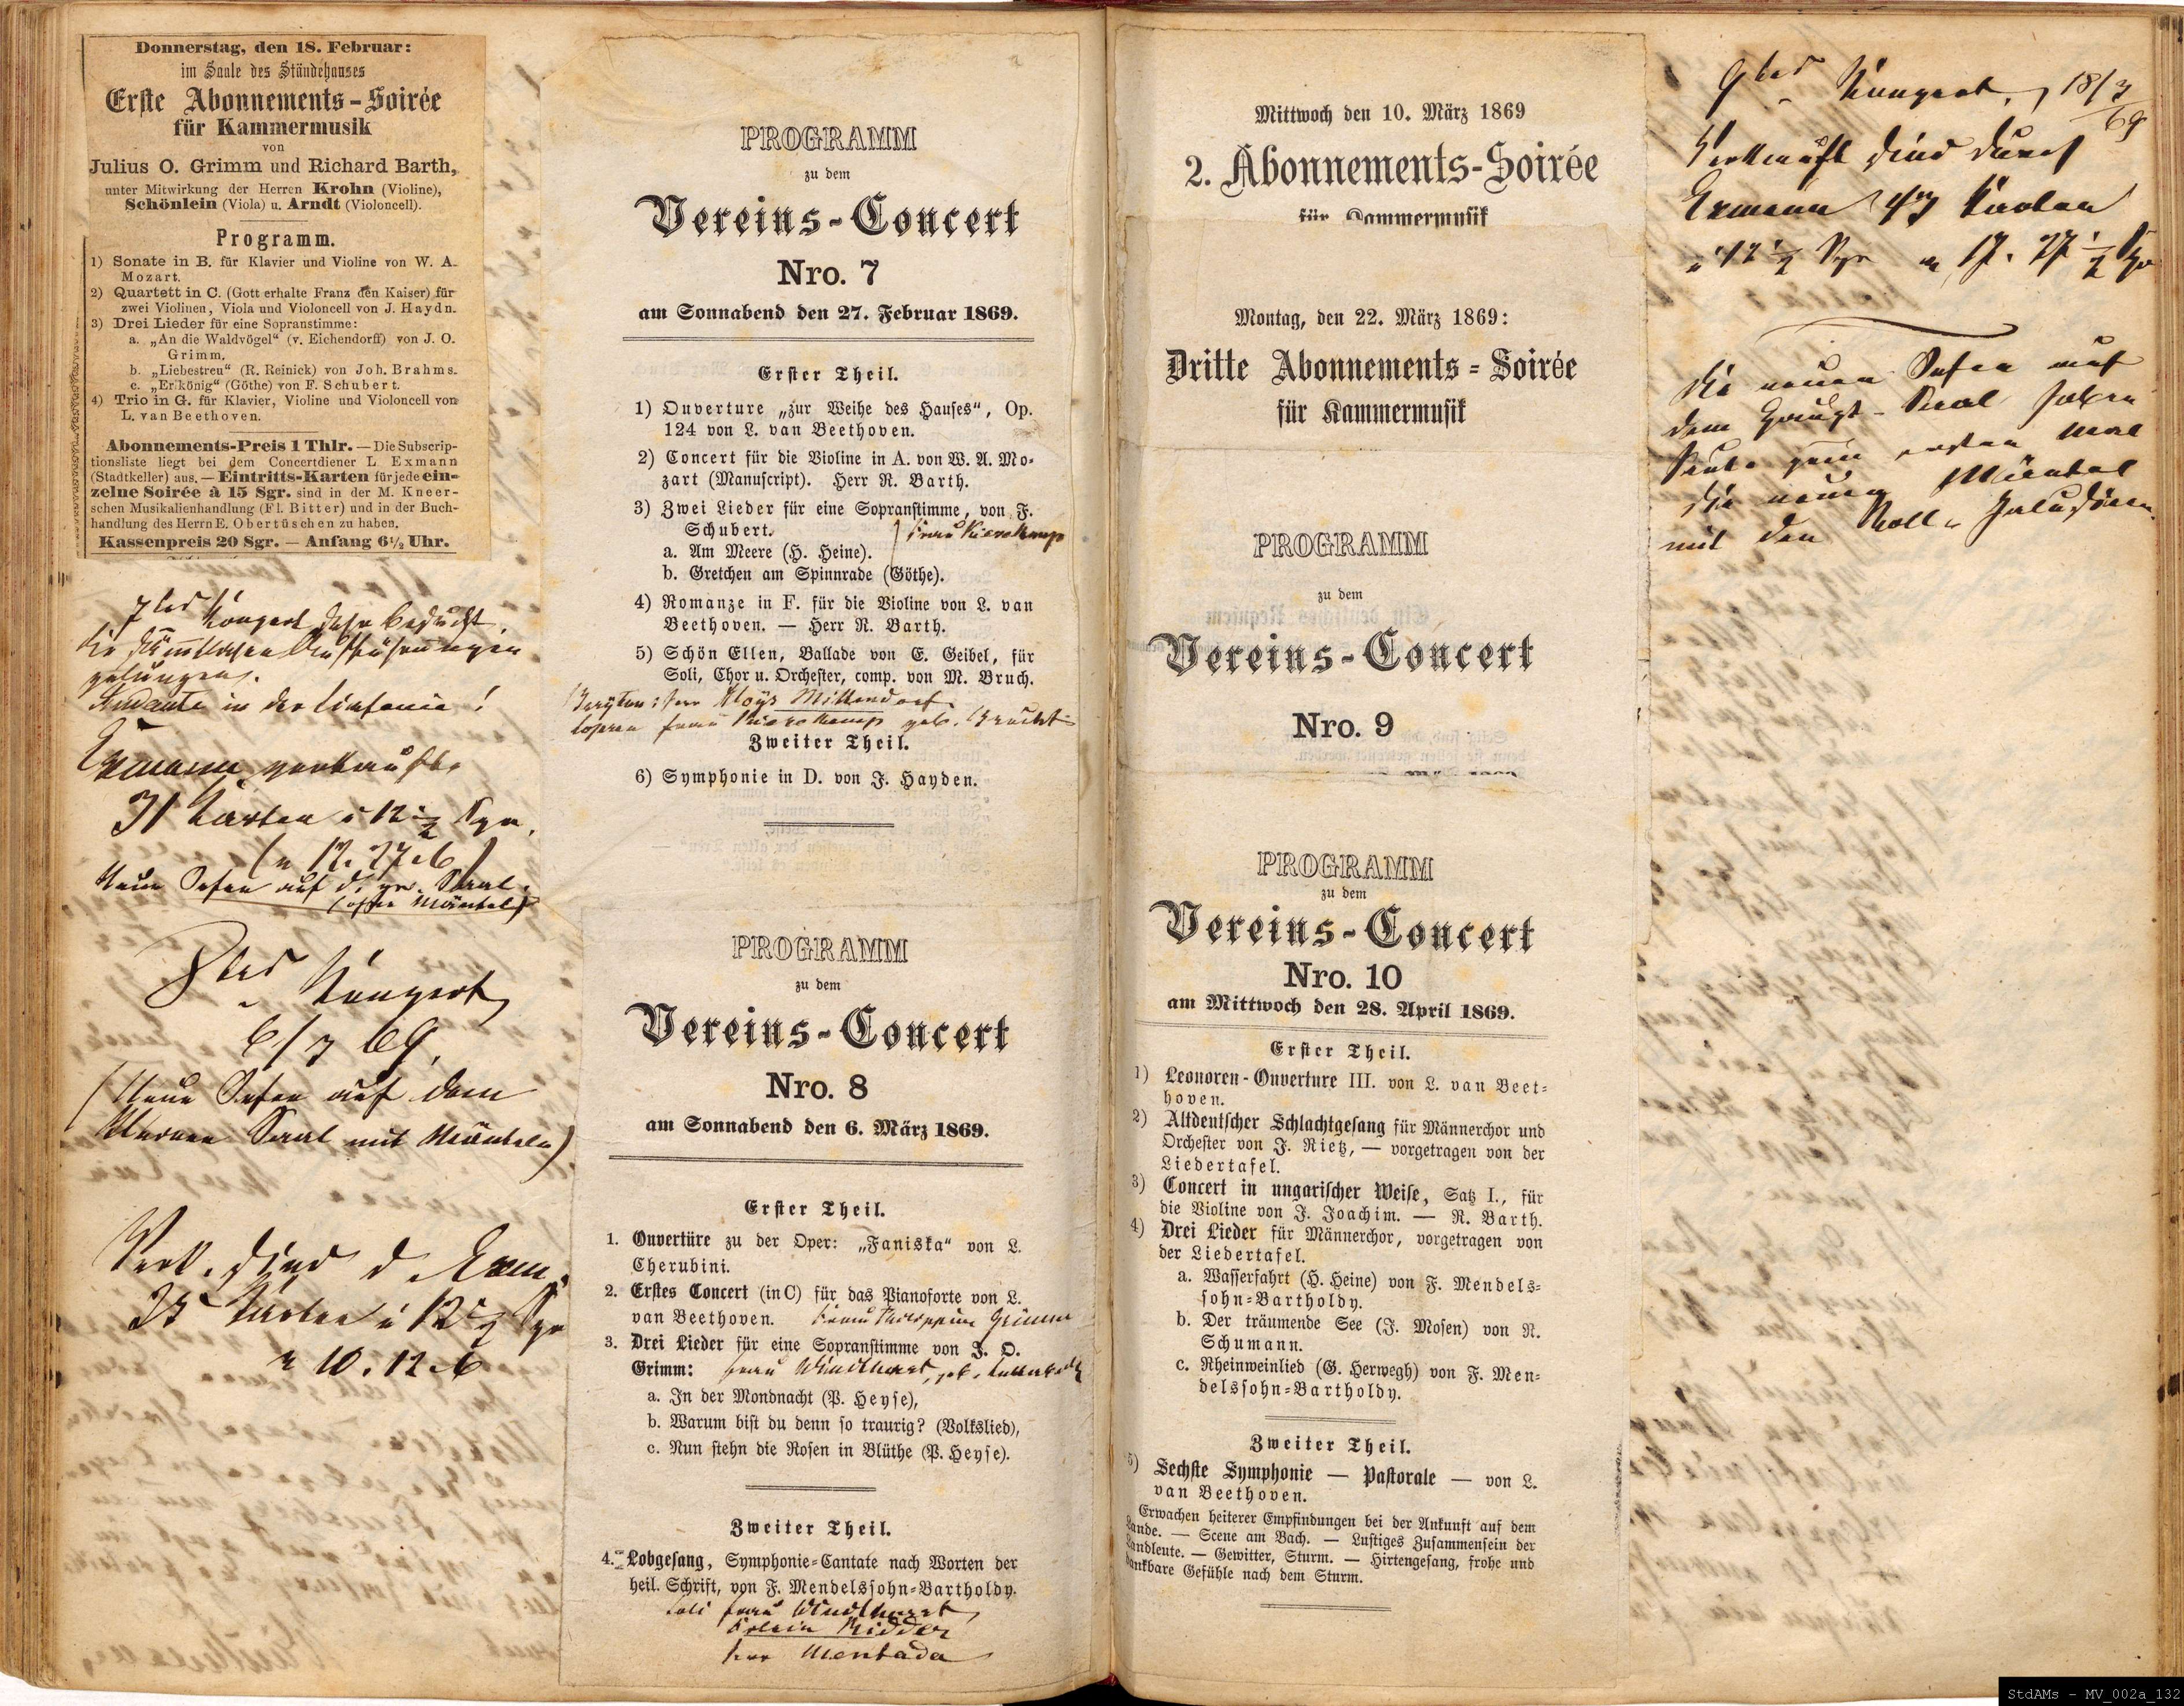 Donnerstag, den 18. Februar:
im Saale des Ständehauses
Erste Abonnements-Soirée
für Kammermusik
von
Julius O. Grimm und Richard Barth,
unter Mitwirkung der Herren Krohn (Violine),
Schönlein (Viola) u. Arndt (Violoncell).
Programm.
1) Sonate in B. für Klavier und Violine von W. A.
Mozart.
2) Quartett in C. (Gott erhalte Franz den Kaiser) für
zwei Violinen, Viola und Violoncell von J. Haydn.
3) Drei Lieder für eine Sopranstimme:
a. „An die Waldvögel“ (v. Eichendorff) von J. O.
Grimm.
b. „Liebestreu“ (R. Reinick) von Joh. Brahms.
c. „Erlkönig“ (Göthe) von F. Schubert.
4) Trio in G. für Klavier, Violine und Violoncell von
L. van Beethoven.
Abonnements-Preis 1 Thlr. — Die Subscrip-
tionsliste liegt bei dem Concertdiener L. Exmann
(Stadtkeller) aus. — Eintritts-Karten für jede ein-
zelne Soirée à 15 Sgr. sind in der M. Kneer-
schen Musikalienhandlung (Fl. Bitter) und in der Buch-
handlung des Herrn E. Obertüschen zu haben.
Kassenpreis 20 Sgr. — Anfang 6½ Uhr.
7tes Konzert sehr besucht.
die sämmtlichen Aufführungen
gelungen.
Andante in der Sinfonie!
Exmann verkaufte
31 Karten à 12½ Sgr.
(= 12. 27. 6)
Neue Oefen auf d. gr. Saal.
(ohne Mäntel)
8tes Konzert
6/3 69.
(Neue Oefen auf dem
kleinen Saal mit Mänteln)
Verk. sind d. Exm.
25 Karten à 12½ Sgr
= 10. 12. 6
PROGRAMM
zu dem
Vereins-Concert
Nro. 7
am Sonnabend den 27. Februar 1869.
Erster Theil.
1) Ouverture „zur Weihe des Hauses“, Op.
124 von L. van Beethoven.
2) Concert für die Violine in A. von W. A. Mo-
zart (Manuscript). Herr R. Barth.
3) Zwei Lieder für eine Sopranstimme, von F.
Schubert.
a. Am Meere (H. Heine).
Frau Kierskamp
b. Gretchen am Spinnrade (Göthe).
4) Romanze in F. für die Violine von L. van
Beethoven. — Herr R. Barth.
5) Schön Ellen, Ballade von E. Geibel, für
Soli, Chor u. Orchester, comp. von M. Bruch.
Baryton: Herr Aloys Mittendorf
Sopran Frau Kierskamp geb.
Zweiter Theil.
6) Symphonie in D. von J. Hayden.
PROGRAMM
zu dem
Vereins-Concert
Nro. 8
am Sonnabend den 6. März 1869.
Erster Theil.
1. Ouvertüre zu der Oper: „Faniska“ von L.
Cherubini.
2. Erstes Concert (in C) für das Pianoforte von L.
van Beethoven. Frau Philippine Grimm
3. Drei Lieder für eine Sopranstimme von J. O.
Grimm: Frau Windthorst, geb.
a. In der Mondnacht (P. Heyse),
b. Warum bist du denn so traurig? (Volkslied),
c. Nun stehn die Rosen in Blüthe (P. Heyse).
Zweiter Theil.
4. Lobgesang, Symphonie-Cantate nach Worten der
heil. Schrift, von F. Mendelssohn-Bartholdy.
Soli Frau Windthorst
Frlein Ridder
Herr Mentada
Mittwoch den 10. März 1869
2. Abonnements-Soirée
für Kammermusik
Montag, den 22. März 1869:
Dritte Abonnements-Soirée
für Kammermusik
PROGRAMM
zu dem
Vereins-Concert
Nro. 9
PROGRAMM
zu dem
Vereins-Concert
Nro. 10
am Mittwoch den 28. April 1869.
Erster Theil.
1) Leonoren-Ouverture III. von L. van Beet-
hoven.
2) Altdeutscher Schlachtgesang für Männerchor und
Orchester von J. Rietz, — vorgetragen von der
Liedertafel.
3) Concert in ungarischer Weise, Satz I., für
die Violine von J. Joachim. — R. Barth.
4) Drei Lieder für Männerchor, vorgetragen von
der Liedertafel.
a. Wasserfahrt (H. Heine) von F. Mendels-
sohn-Bartholdy.
b. Der träumende See (J. Mosen) von R.
Schumann.
c. Rheinweinlied (G. Herwegh) von F. Men-
delssohn-Bartholdy.
Zweiter Theil.
5) Sechste Symphonie — Pastorale — von L.
van Beethoven.
Erwachen heiterer Empfindungen bei der Ankunft auf dem
Lande. — Scene am Bach. — Lustiges Zusammensein der
Landleute. — Gewitter, Sturm. — Hirtengesang, frohe und
dankbare Gefühle nach dem Sturm.
9tes Konzert, 18/3
69
Verkauft sind durch
Exmann 43 Karten
à 12½ Sgr = 17. 27½ Sgr
Die neuen Oefen auf
dem Haupt-Saal haben
heute zum ersten Mal
die neuen Mäntel
mit den Roll-Jalusieen.
StdAMs - MV_002a_132